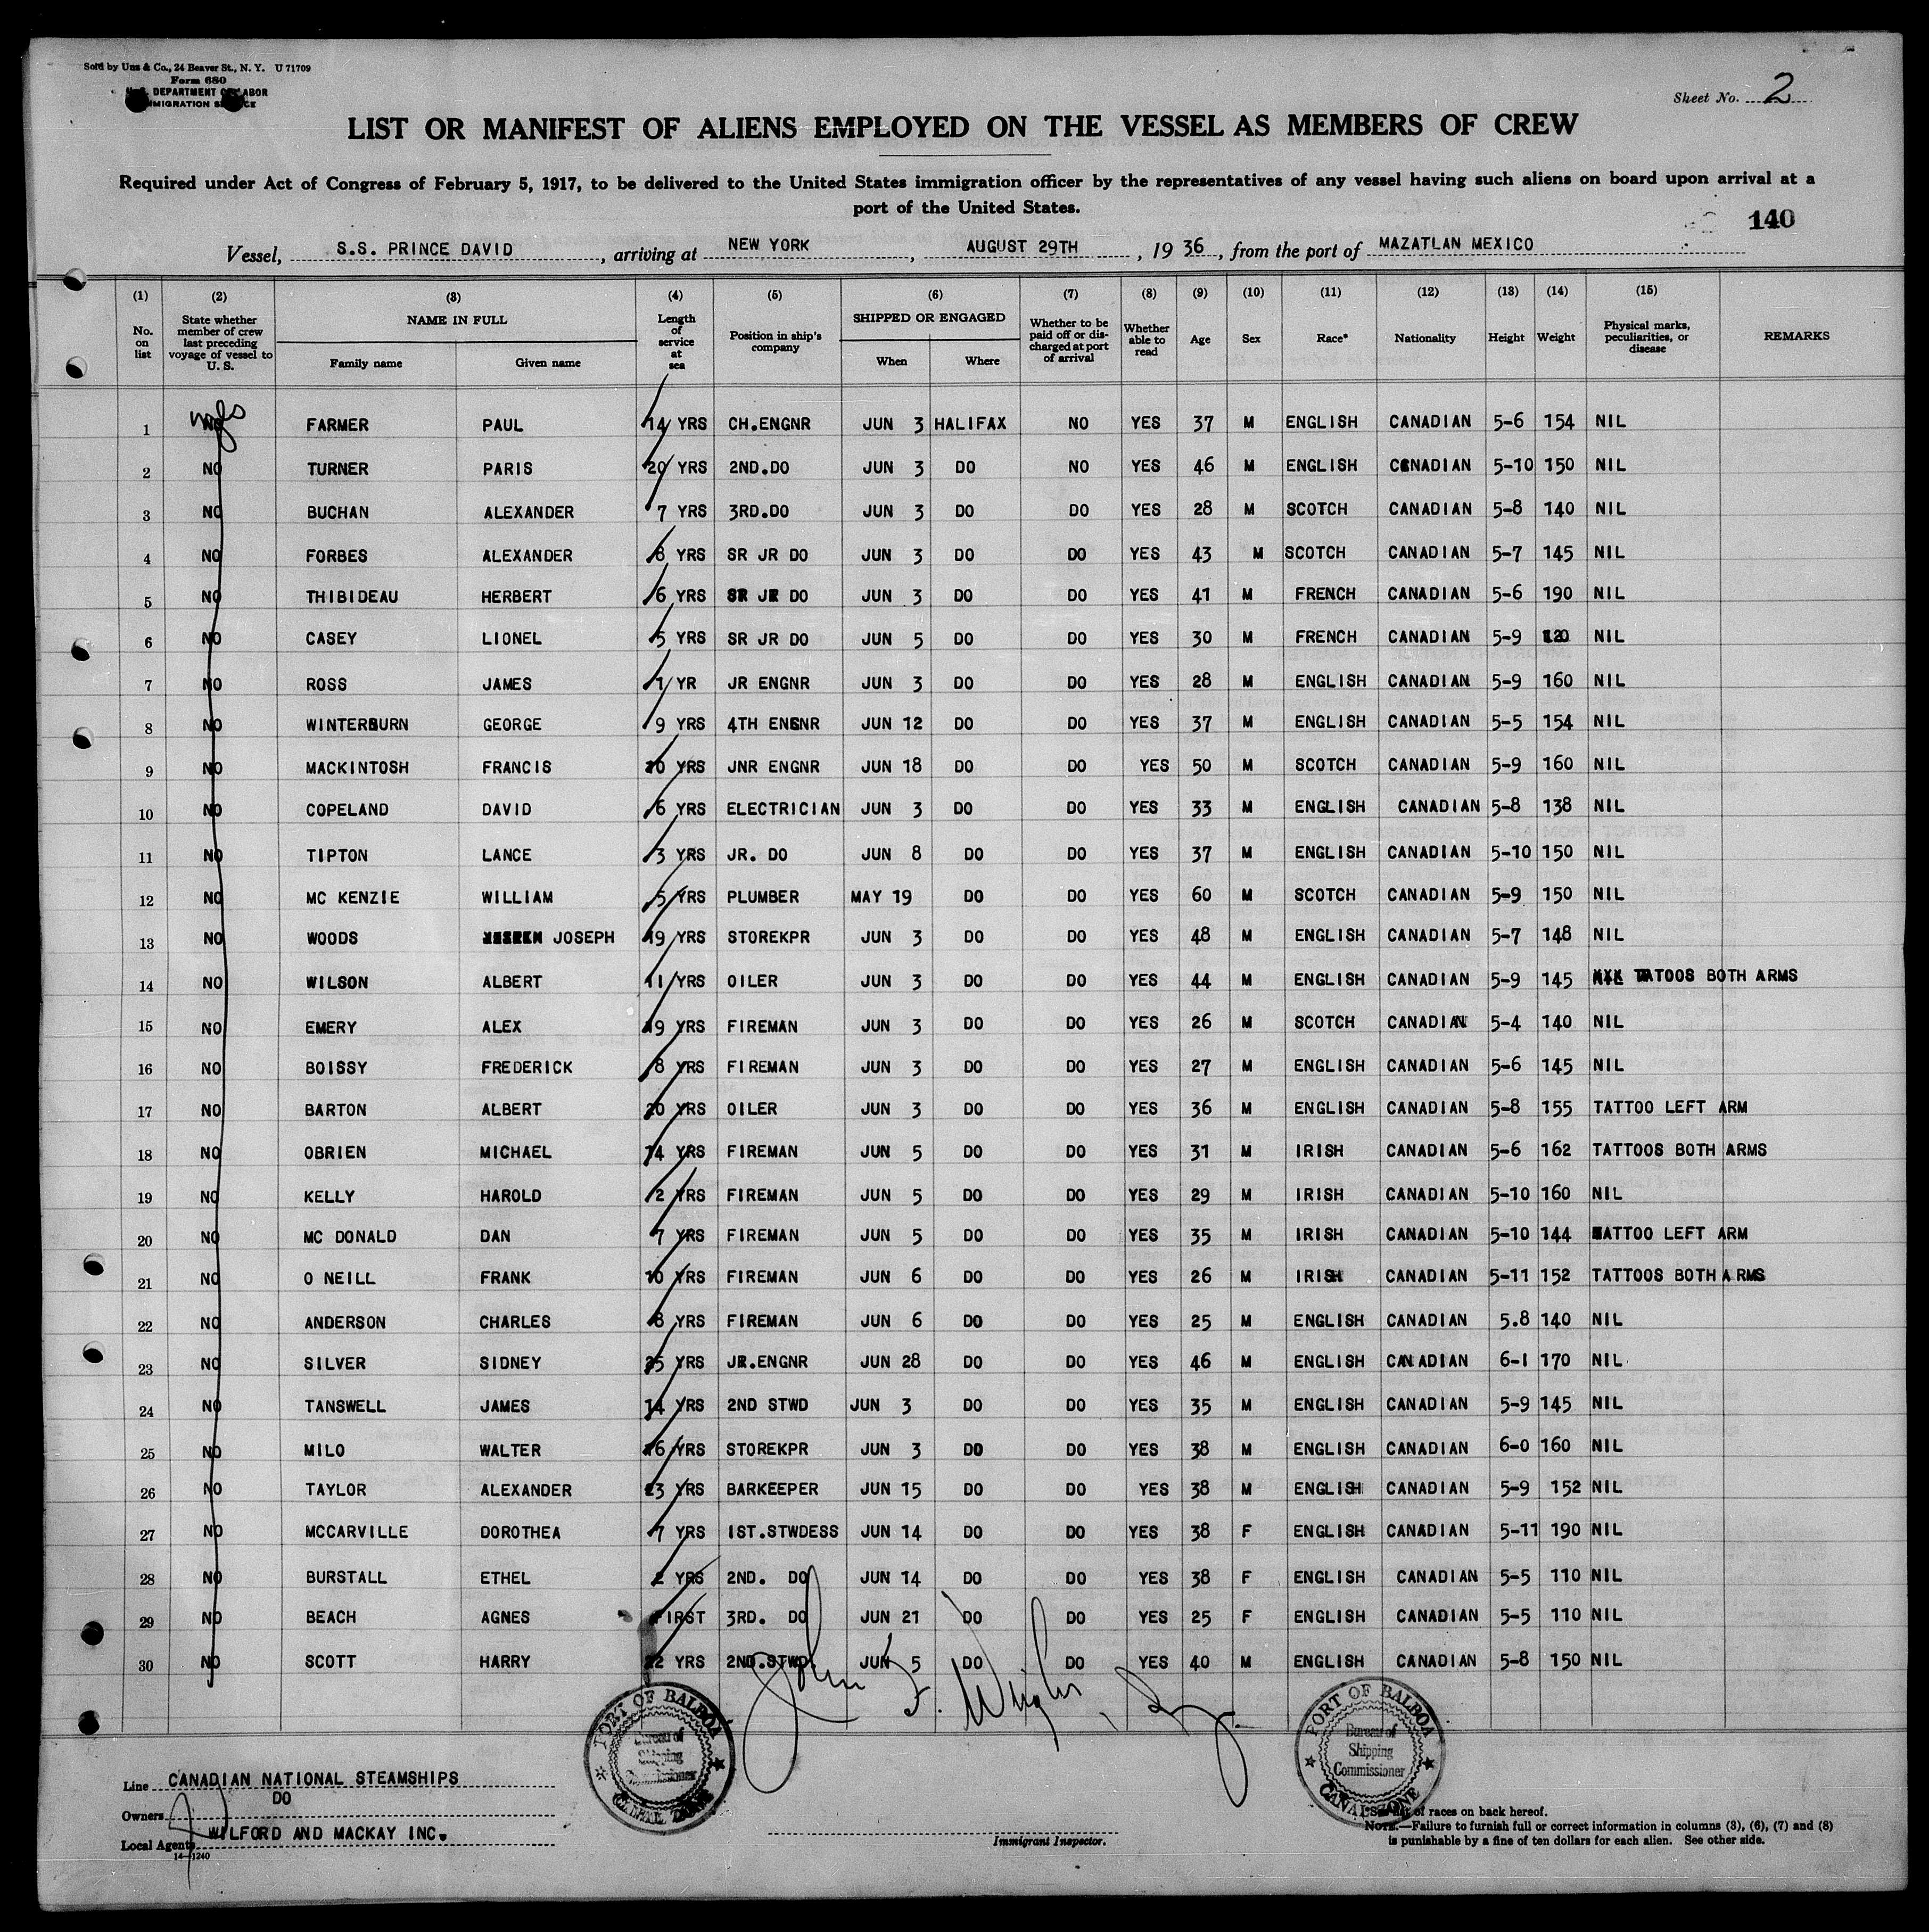 Sold by Uns & Co., 24 Beaver St., N. Y. U 71709
Form 680
U.S. DEPARTMENT OF LABOR
IMMIGRATION SERVICE
Sheet No. 2
LIST OR MANIFEST OF ALIENS EMPLOYED ON THE VESSEL AS MEMBERS OF CREW
Required under Act of Congress of February 5, 1917, to be delivered to the United States immigration officer by the representatives of any vessel having such aliens on board upon arrival at a
port of the United States.
140
Vessel, S.S. PRINCE DAVID, arriving at NEW YORK, AUGUST 29TH, 1936, from the port of MAZATLAN MEXICO
(1) No. on list (2) State whether member of crew last preceding voyage of vessel to U. S. (3) NAME IN FULL Family name Given name (4) Length of service at sea (5) Position in ship's company (6) SHIPPED OR ENGAGED When Where (7) Whether to be paid off or discharged at port of arrival (8) Whether able to read (9) Age (10) Sex (11) Race* (12) Nationality (13) Height (14) Weight (15) Physical marks, peculiarities, or disease REMARKS
1 NO FARMER PAUL 14 YRS CH.ENGNR JUN 3 HALIFAX NO YES 37 M ENGLISH CANADIAN 5-6 154 NIL
2 NO TURNER PARIS 20 YRS 2ND.DO JUN 3 DO NO YES 46 M ENGLISH CANADIAN 5-10 150 NIL
3 NO BUCHAN ALEXANDER 7 YRS 3RD.DO JUN 3 DO DO YES 28 M SCOTCH CANADIAN 5-8 140 NIL
4 NO FORBES ALEXANDER 8 YRS SR JR DO JUN 3 DO DO YES 43 M SCOTCH CANADIAN 5-7 145 NIL
5 NO THIBIDEAU HERBERT 6 YRS SR JR DO JUN 3 DO DO YES 41 M FRENCH CANADIAN 5-6 190 NIL
6 NO CASEY LIONEL 5 YRS SR JR DO JUN 5 DO DO YES 30 M FRENCH CANADIAN 5-9 120 NIL
7 NO ROSS JAMES 1 YR JR ENGNR JUN 3 DO DO YES 28 M ENGLISH CANADIAN 5-9 160 NIL
8 NO WINTERBURN GEORGE 9 YRS 4TH ENGNR JUN 12 DO DO YES 37 M ENGLISH CANADIAN 5-5 154 NIL
9 NO MACKINTOSH FRANCIS 20 YRS JNR ENGNR JUN 18 DO DO YES 50 M SCOTCH CANADIAN 5-9 160 NIL
10 NO COPELAND DAVID 6 YRS ELECTRICIAN JUN 3 DO DO YES 33 M ENGLISH CANADIAN 5-8 138 NIL
11 NO TIPTON LANCE 3 YRS JR. DO JUN 8 DO DO YES 37 M ENGLISH CANADIAN 5-10 150 NIL
12 NO MC KENZIE WILLIAM 5 YRS PLUMBER MAY 19 DO DO YES 60 M SCOTCH CANADIAN 5-9 150 NIL
13 NO WOODS JOSEPH 19 YRS STOREKPR JUN 3 DO DO YES 48 M ENGLISH CANADIAN 5-7 148 NIL
14 NO WILSON ALBERT 11 YRS OILER JUN 3 DO DO YES 44 M ENGLISH CANADIAN 5-9 145 TATOOS BOTH ARMS
15 NO EMERY ALEX 19 YRS FIREMAN JUN 3 DO DO YES 26 M SCOTCH CANADIAN 5-4 140 NIL
16 NO BOISSY FREDERICK 8 YRS FIREMAN JUN 3 DO DO YES 27 M ENGLISH CANADIAN 5-6 145 NIL
17 NO BARTON ALBERT 20 YRS OILER JUN 3 DO DO YES 36 M ENGLISH CANADIAN 5-8 155 TATTOO LEFT ARM
18 NO OBRIEN MICHAEL 14 YRS FIREMAN JUN 5 DO DO YES 31 M IRISH CANADIAN 5-6 162 TATTOOS BOTH ARMS
19 NO KELLY HAROLD 2 YRS FIREMAN JUN 5 DO DO YES 29 M IRISH CANADIAN 5-10 160 NIL
20 NO MC DONALD DAN 7 YRS FIREMAN JUN 5 DO DO YES 35 M IRISH CANADIAN 5-10 144 TATTOO LEFT ARM
21 NO O NEILL FRANK 10 YRS FIREMAN JUN 6 DO DO YES 26 M IRISH CANADIAN 5-11 152 TATTOOS BOTH ARMS
22 NO ANDERSON CHARLES 8 YRS FIREMAN JUN 6 DO DO YES 25 M ENGLISH CANADIAN 5.8 140 NIL
23 NO SILVER SIDNEY 25 YRS JR.ENGNR JUN 28 DO DO YES 46 M ENGLISH CANADIAN 6-1 170 NIL
24 NO TANSWELL JAMES 14 YRS 2ND STWD JUN 3 DO DO YES 35 M ENGLISH CANADIAN 5-9 145 NIL
25 NO MILO WALTER 16 YRS STOREKPR JUN 3 DO DO YES 38 M ENGLISH CANADIAN 6-0 160 NIL
26 NO TAYLOR ALEXANDER 23 YRS BARKEEPER JUN 15 DO DO YES 38 M ENGLISH CANADIAN 5-9 152 NIL
27 NO MCCARVILLE DOROTHEA 7 YRS 1ST.STWDESS JUN 14 DO DO YES 38 F ENGLISH CANADIAN 5-11 190 NIL
28 NO BURSTALL ETHEL 2 YRS 2ND. DO JUN 14 DO DO YES 38 F ENGLISH CANADIAN 5-5 110 NIL
29 NO BEACH AGNES FIRST 3RD. DO JUN 21 DO DO YES 25 F ENGLISH CANADIAN 5-5 110 NIL
30 NO SCOTT HARRY 22 YRS 2ND.STWD. JUN 5 DO DO YES 40 M ENGLISH CANADIAN 5-8 150 NIL
John F. Wright
PORT OF BALBOA Bureau of Shipping Commissioner CANAL ZONE
PORT OF BALBOA Bureau of Shipping Commissioner CANAL ZONE
Line CANADIAN NATIONAL STEAMSHIPS
Owners DO
Local Agents WILFORD AND MACKAY INC.
14-1240
Immigrant Inspector.
*See list of races on back hereof.
NOTE.—Failure to furnish full or correct information in columns (3), (6), (7) and (8)
is punishable by a fine of ten dollars for each alien. See other side.